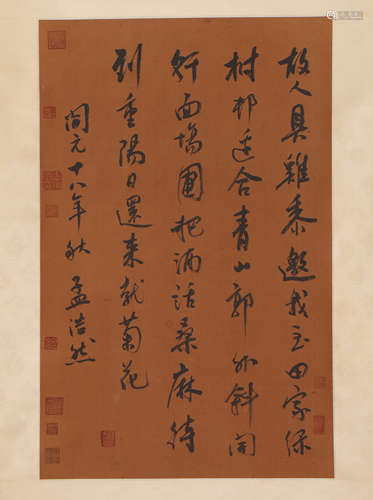 故人具雞黍邀我至田家绿
树邨边合青山郭外斜開
軒面場圃把酒話桑麻待
到重陽日還来就菊花
開元十八年秋孟浩然